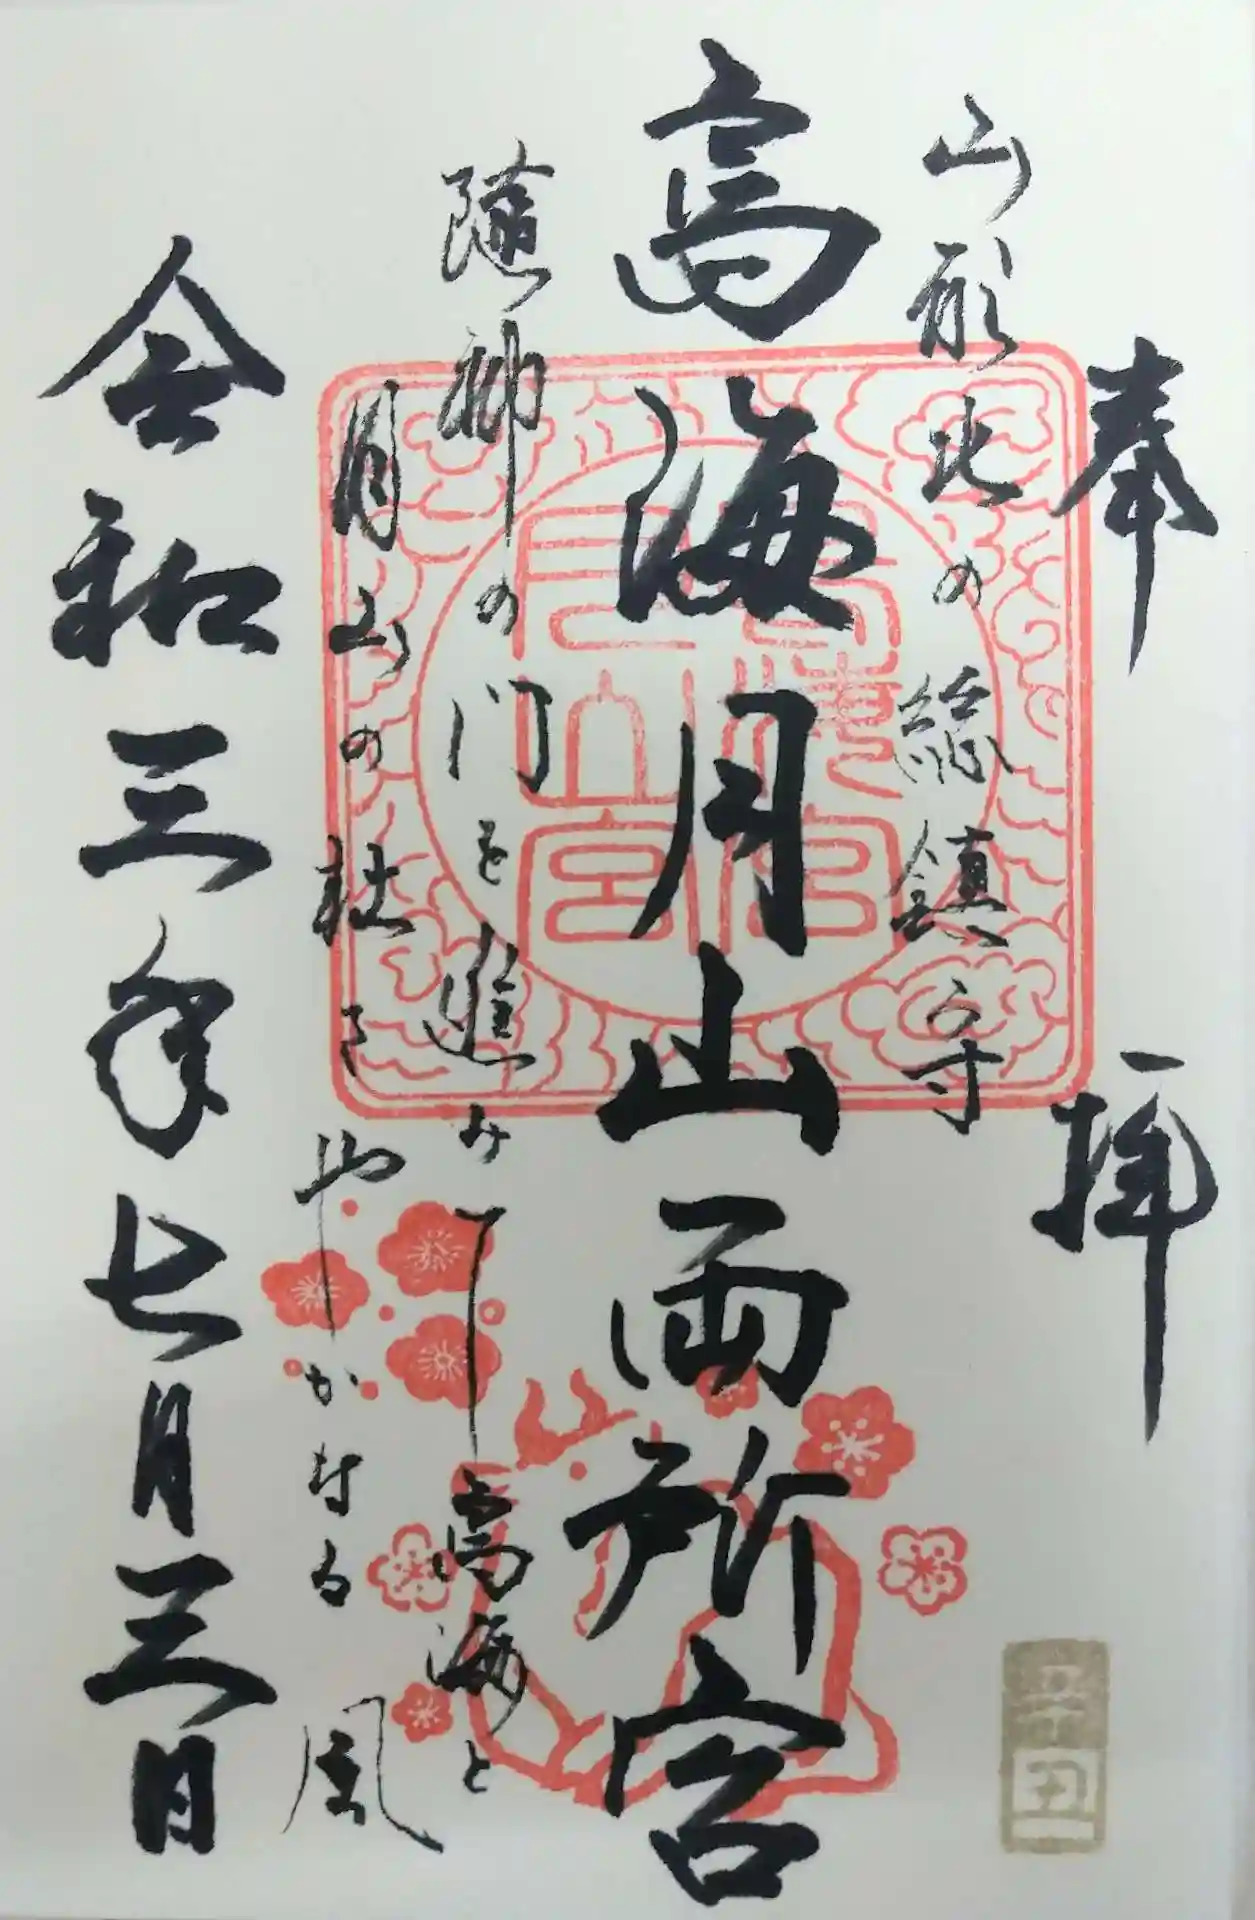 奉拝
山形北の総鎮守
高海月山両所宮
随神の門を進みて高海と
月山の社さやかなる風
令和三年七月三日
辛丑